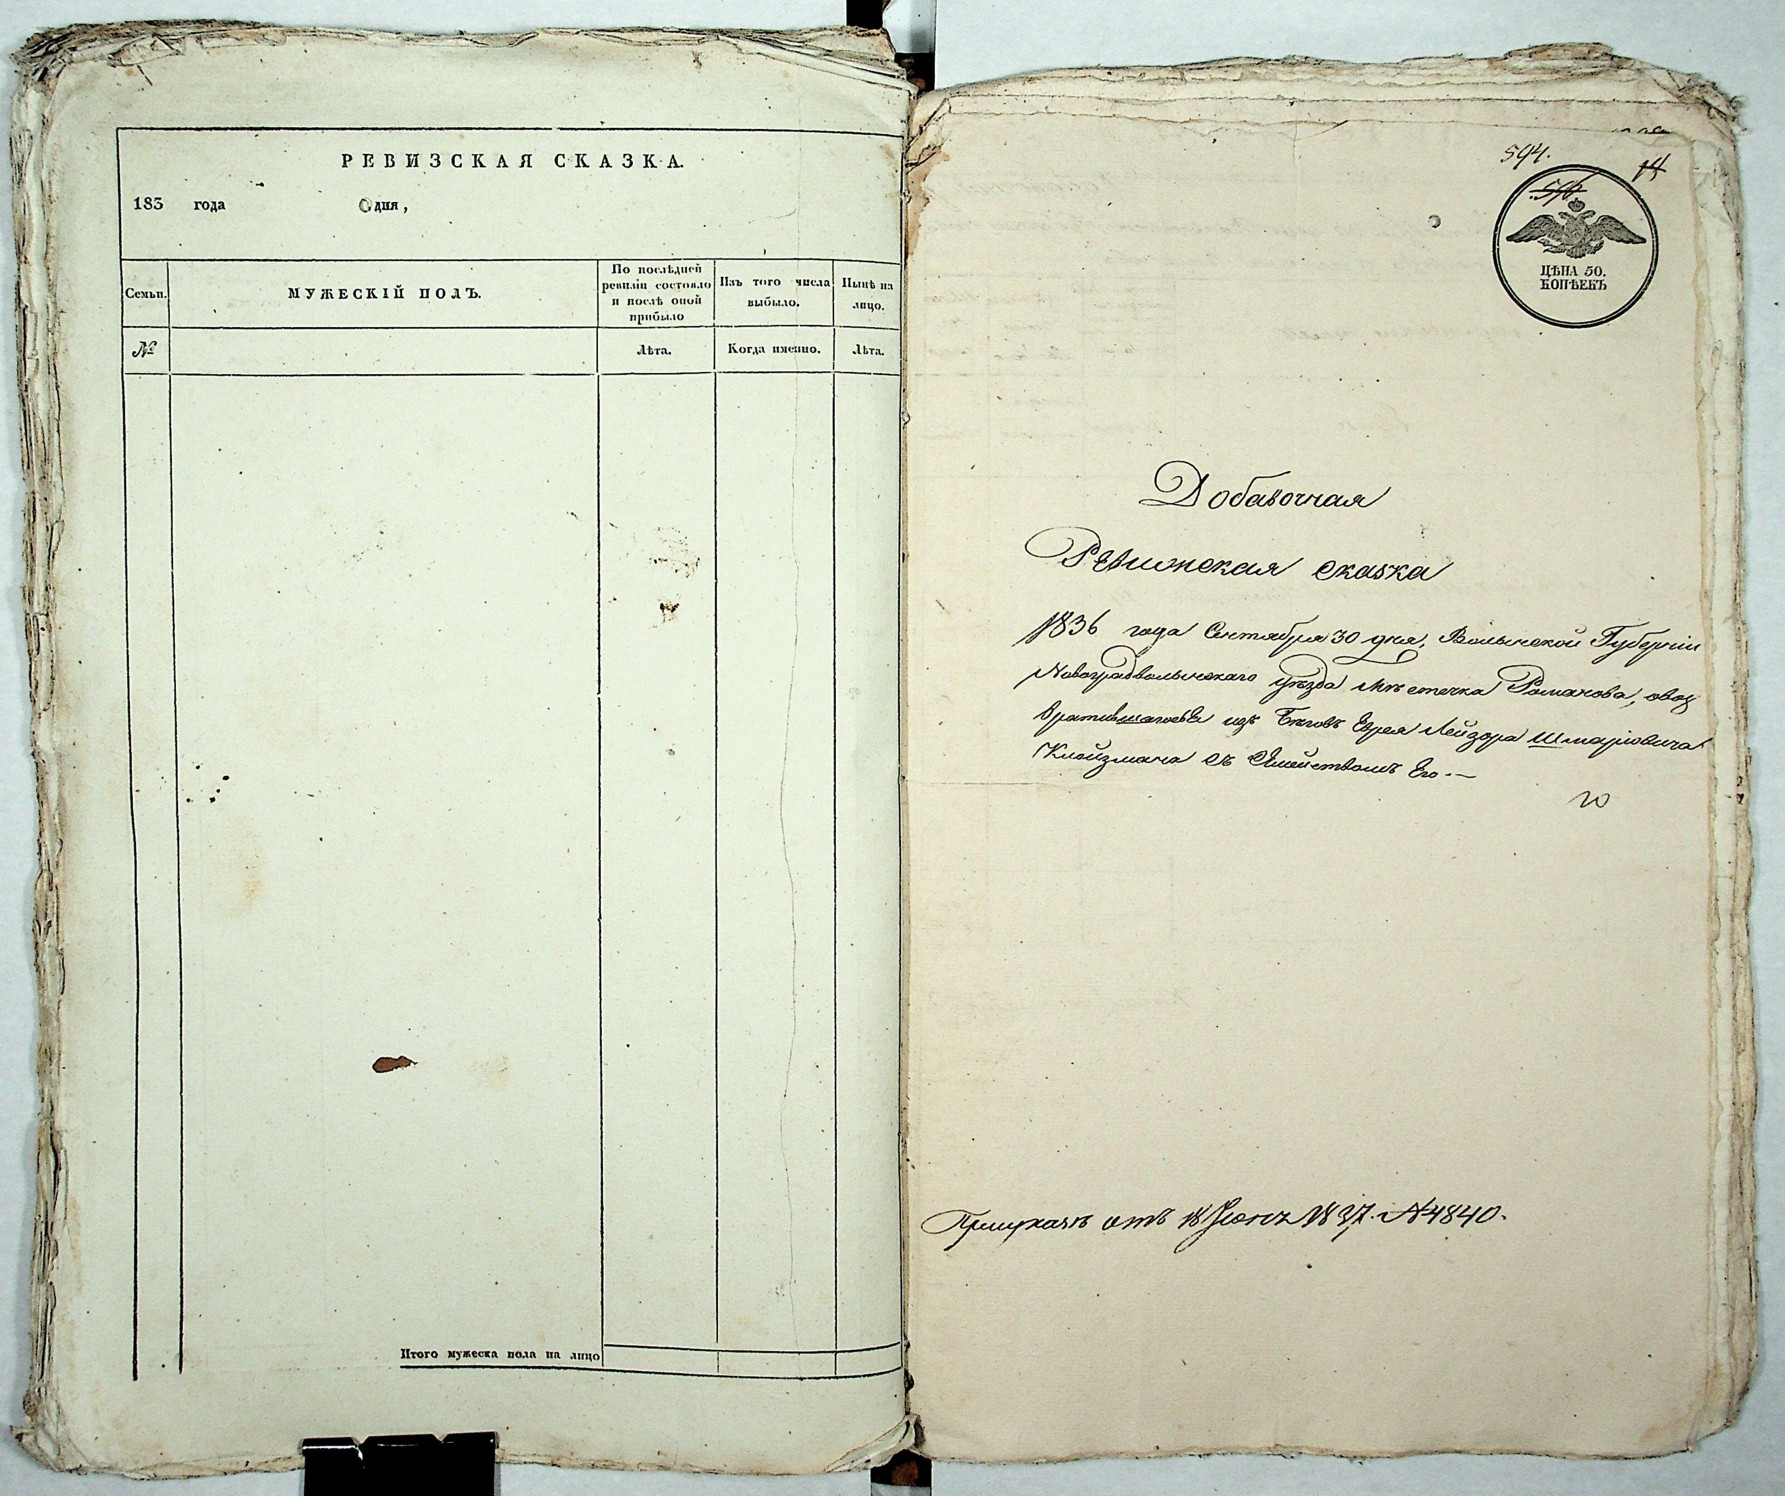 РЕВИЗСКАЯ СКАЗКА.
183 года дня,
Семьи.
МУЖЕСКІЙ ПОЛЪ.
По послѣдней
ревизіи состояло
и послѣ оной
прибыло
Изъ того числа
выбыло.
Нынѣ на
лицо.
№
Лѣта.
Когда именно.
Лѣта.
Итого мужеска пола на лицо
594.
14
596
ЦѢНА 50.
КОПѢЕКЪ
Добавочная
Ревижская сказка
1836 года Сентября 30 дня, Волынской Губерніи
Новоградволынскаго уѣзда мѣстечка Романова, овоз
вратившагося изъ Бѣговъ Еврея Лейзора Шмаріовича
Клейзмана съ Семействомъ Его.—
при указѣ отъ 18 Іюня 1837. №4840.